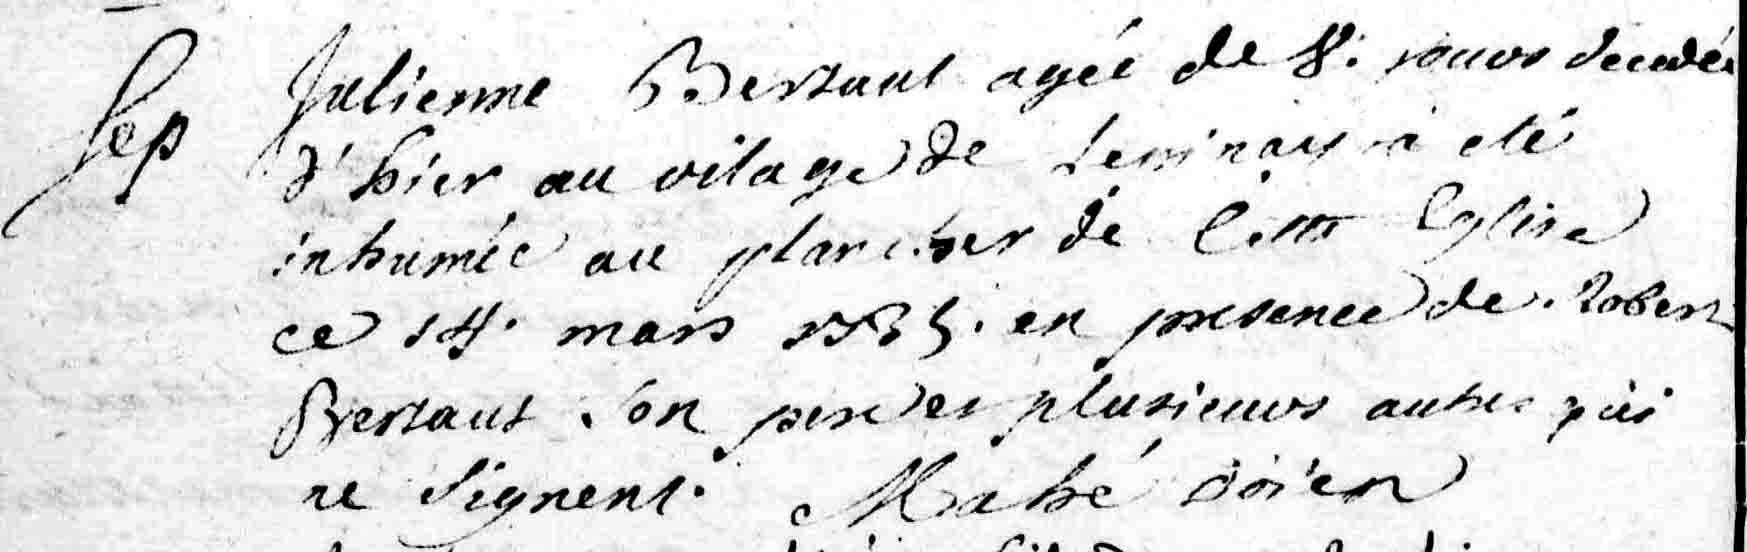 Sep Julienne Bertaut agée de 8. jours decedée
d'hier au vilage de a eté
inhumée au plancher de Cette Eglise
ce 14. mars 1735. en presence de Robert
Bertaut Son pere et plusieurs autres qui
ne Signent. Mahé